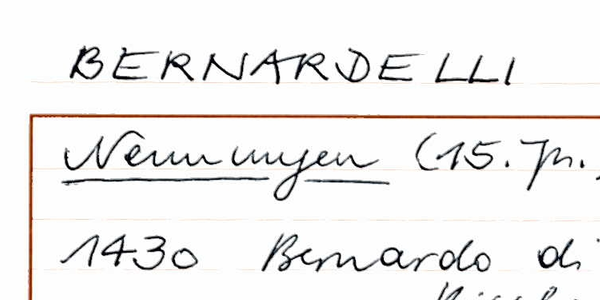 BERNARDELLI
Nennungen (15. Jh.
1430 Bernardo di